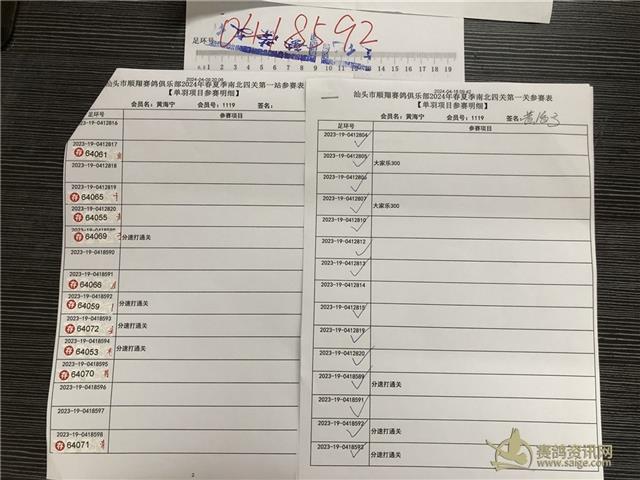 0418592
足环号
0 1 2 3 4 5 6 7 8 9 10 11 12 13 14 15 16 17 18 19
2024-04-09
汕头市顺翔赛鸽俱乐部2024年春夏季南北四关第一站参赛表
【单羽项目参赛明细】
会员名：黄海宁 会员号：1119 签名：
参赛项目
2023-19-0412816
2023-19-0412817
存 64061
2023-19-0412818
2023-19-0412819
存 64065
2023-19-0412820
存 64055
存 64069 分速打通关
2023-19-0418590
2023-19-0418591
存 64068
2023-19-0418592
存 64059 分速打通关
2023-19-0418593
存 64072 分速打通关
2023-19-0418594
存 64053 分速打通关
2023-19-0418595
存 64070
2023-19-0418596
2023-19-0418597
2023-19-0418598
存 64071
2
2024-04-18
汕头市顺翔赛鸽俱乐部2024年春夏季南北四关第一关参赛表
【单羽项目参赛明细】
会员名：黄海宁 会员号：1119 签名：
足环号 参赛项目
2023-19-0412804
2023-19-0412805 大家乐300
2023-19-0412806
2023-19-0412807 大家乐300
2023-19-0412810
2023-19-0412812
2023-19-0412813
2023-19-0412814
2023-19-0412815
2023-19-0412819
2023-19-0412820
2023-19-0418589 分速打通关
2023-19-0418591
2023-19-0418592 分速打通关
2023-19-0418593 分速打通关
赛鸽资讯网
www.saige.com